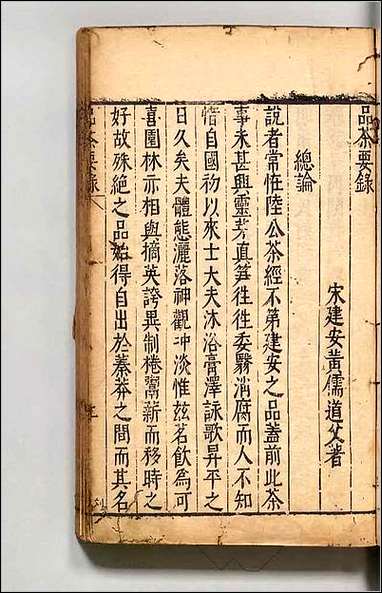 品茶要錄
宋建安黃儒道父著
總論
說者常恠陸公茶經不第建安之品蓋前此茶
事未甚興靈芽真笋徃徃委翳消腐而人不知
惜自國初以來士大夫沐浴膏澤詠歌昇平之
日久矣夫體態灑落神觀冲淡惟茲茗飲爲可
喜園林亦相與摘英誇異制棬鬻新而移時之
好故殊絕之品始得自出於蓁莽之間而其名
品茶要錄